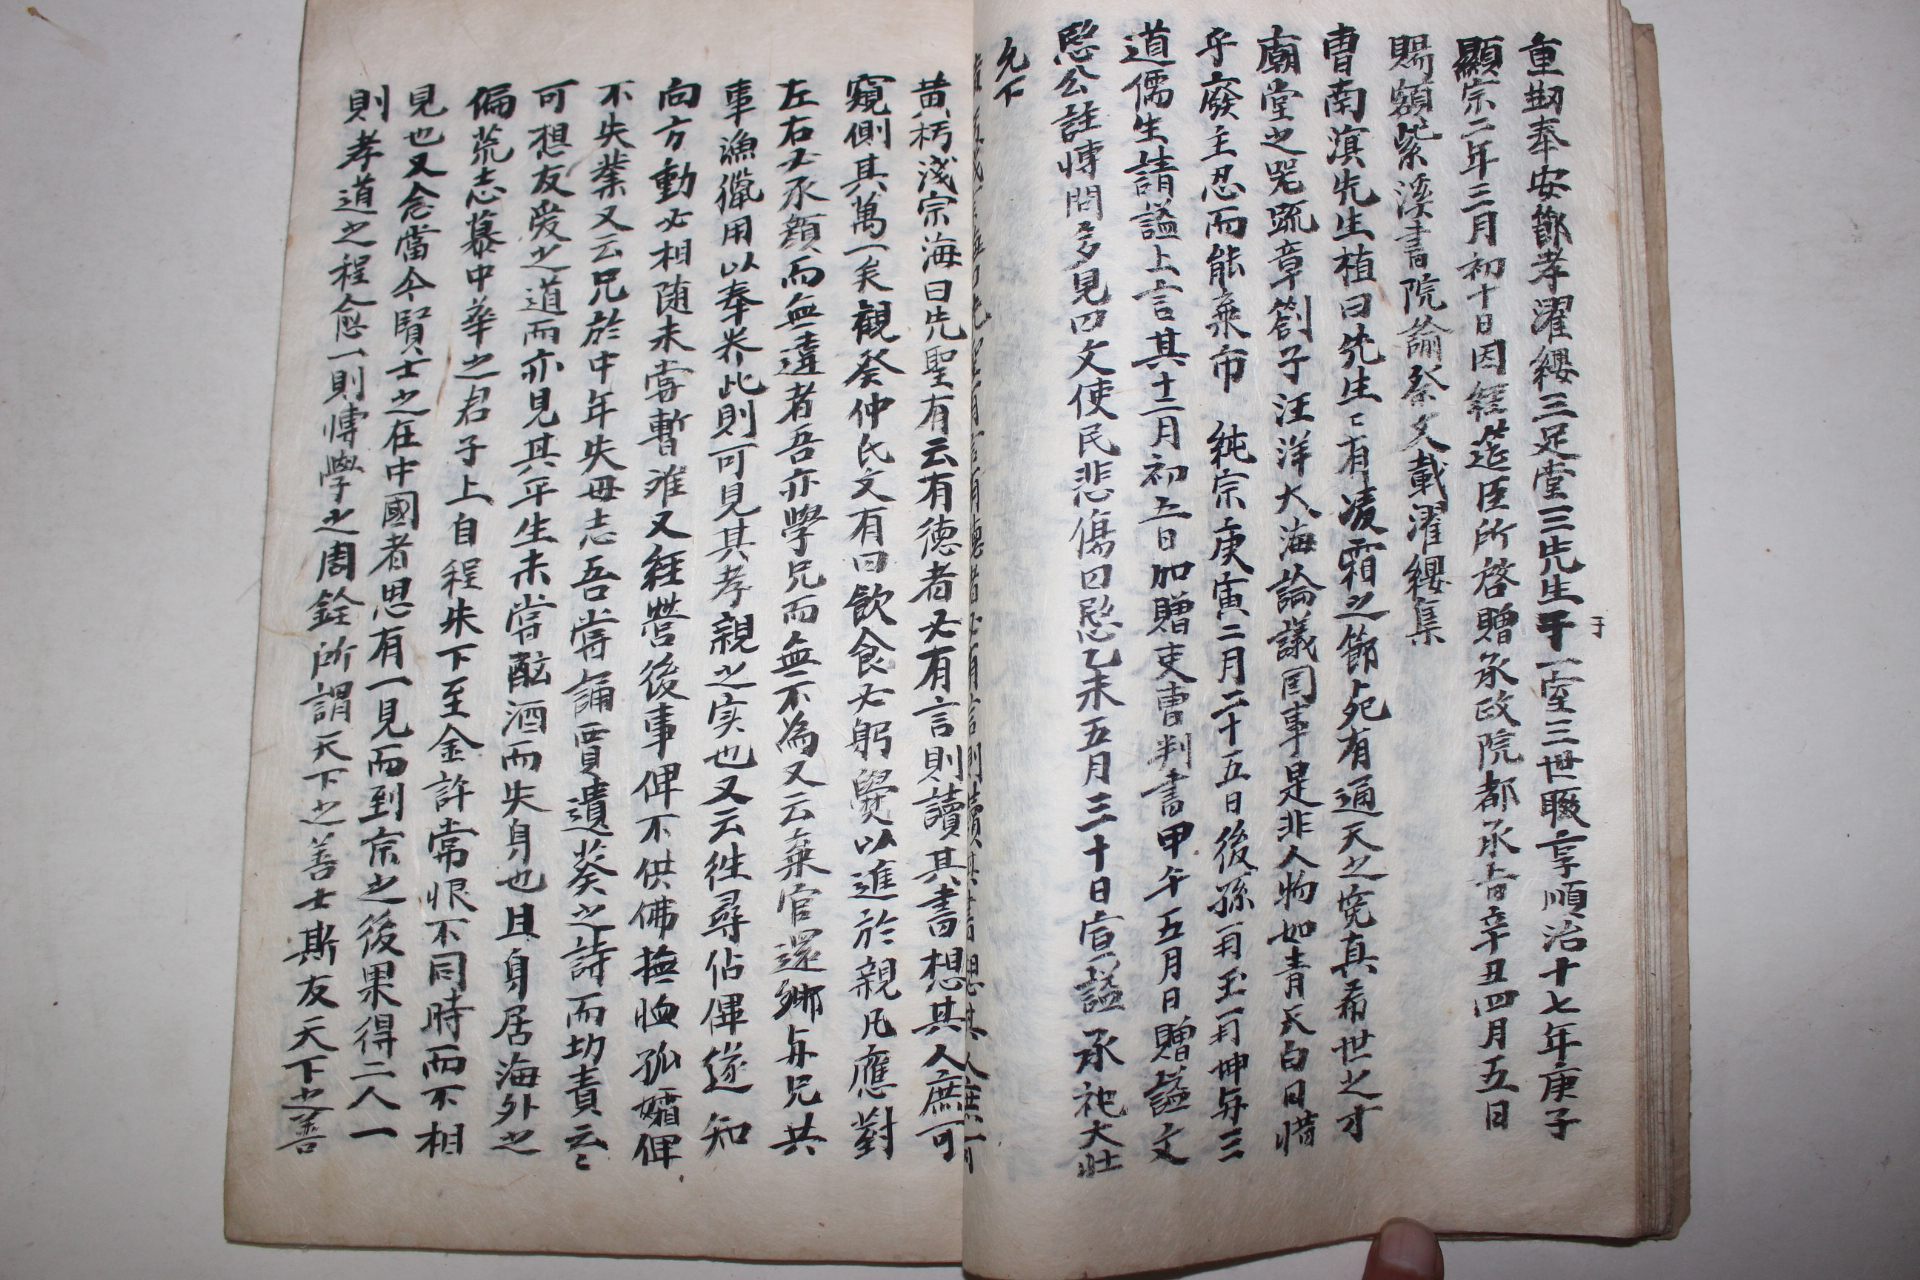 重刱奉安節孝濯纓三足堂三先生于一室三世腏享順治十七年庚子
于
顯宗二年三月初十日因經筵臣所啓贈承政院都承旨辛丑四月五日
賜額紫溪書院諭祭文載濯纓集
曺南溟先生植曰先生〻有凌霜之節死有通天之寃眞希世之才
廟堂之器疏章箚子汪洋大海論議同事是非人物如靑天白日惜
乎廢主忍而能棄市 純宗庚寅二月二十五日後孫 坤与三
道儒生請謚上言其十二月初五日加贈吏曹判書甲午五月日贈謚文
愍公註博問多見曰文使民悲傷曰愍乙未五月三十日宣謚承祀大壯
允下
黃朽淺宗海曰先聖有云有德者必有言則讀其書想其人庶可
窺側其萬一矣觀祭仲氏文有曰飮食必躬爨以進於親凡應對
左右必承顔而無違者吾亦學兄而無不為又云棄官還鄕与兄共
事漁獵用以奉养此則可見其孝親之实也又云徃尋佔俾遂知
向方動必相随未嘗暫離又經營後事俾不供佛撫恤孤孀俾
不失業又云兄於中年失毋志吾嘗誦賈遺葵之詩而切責云〻
可想友爱之道而亦見其平生未嘗酖酒而失身也且身居海外之
偏荒志慕中華之君子上自程朱下至金許常恨不同時而不相
見也又念當今賢士之在中國者思有一見而到京之後果得二人一
則孝道之程愈一則博學之周銓所謂天下之善士斯友天下之善